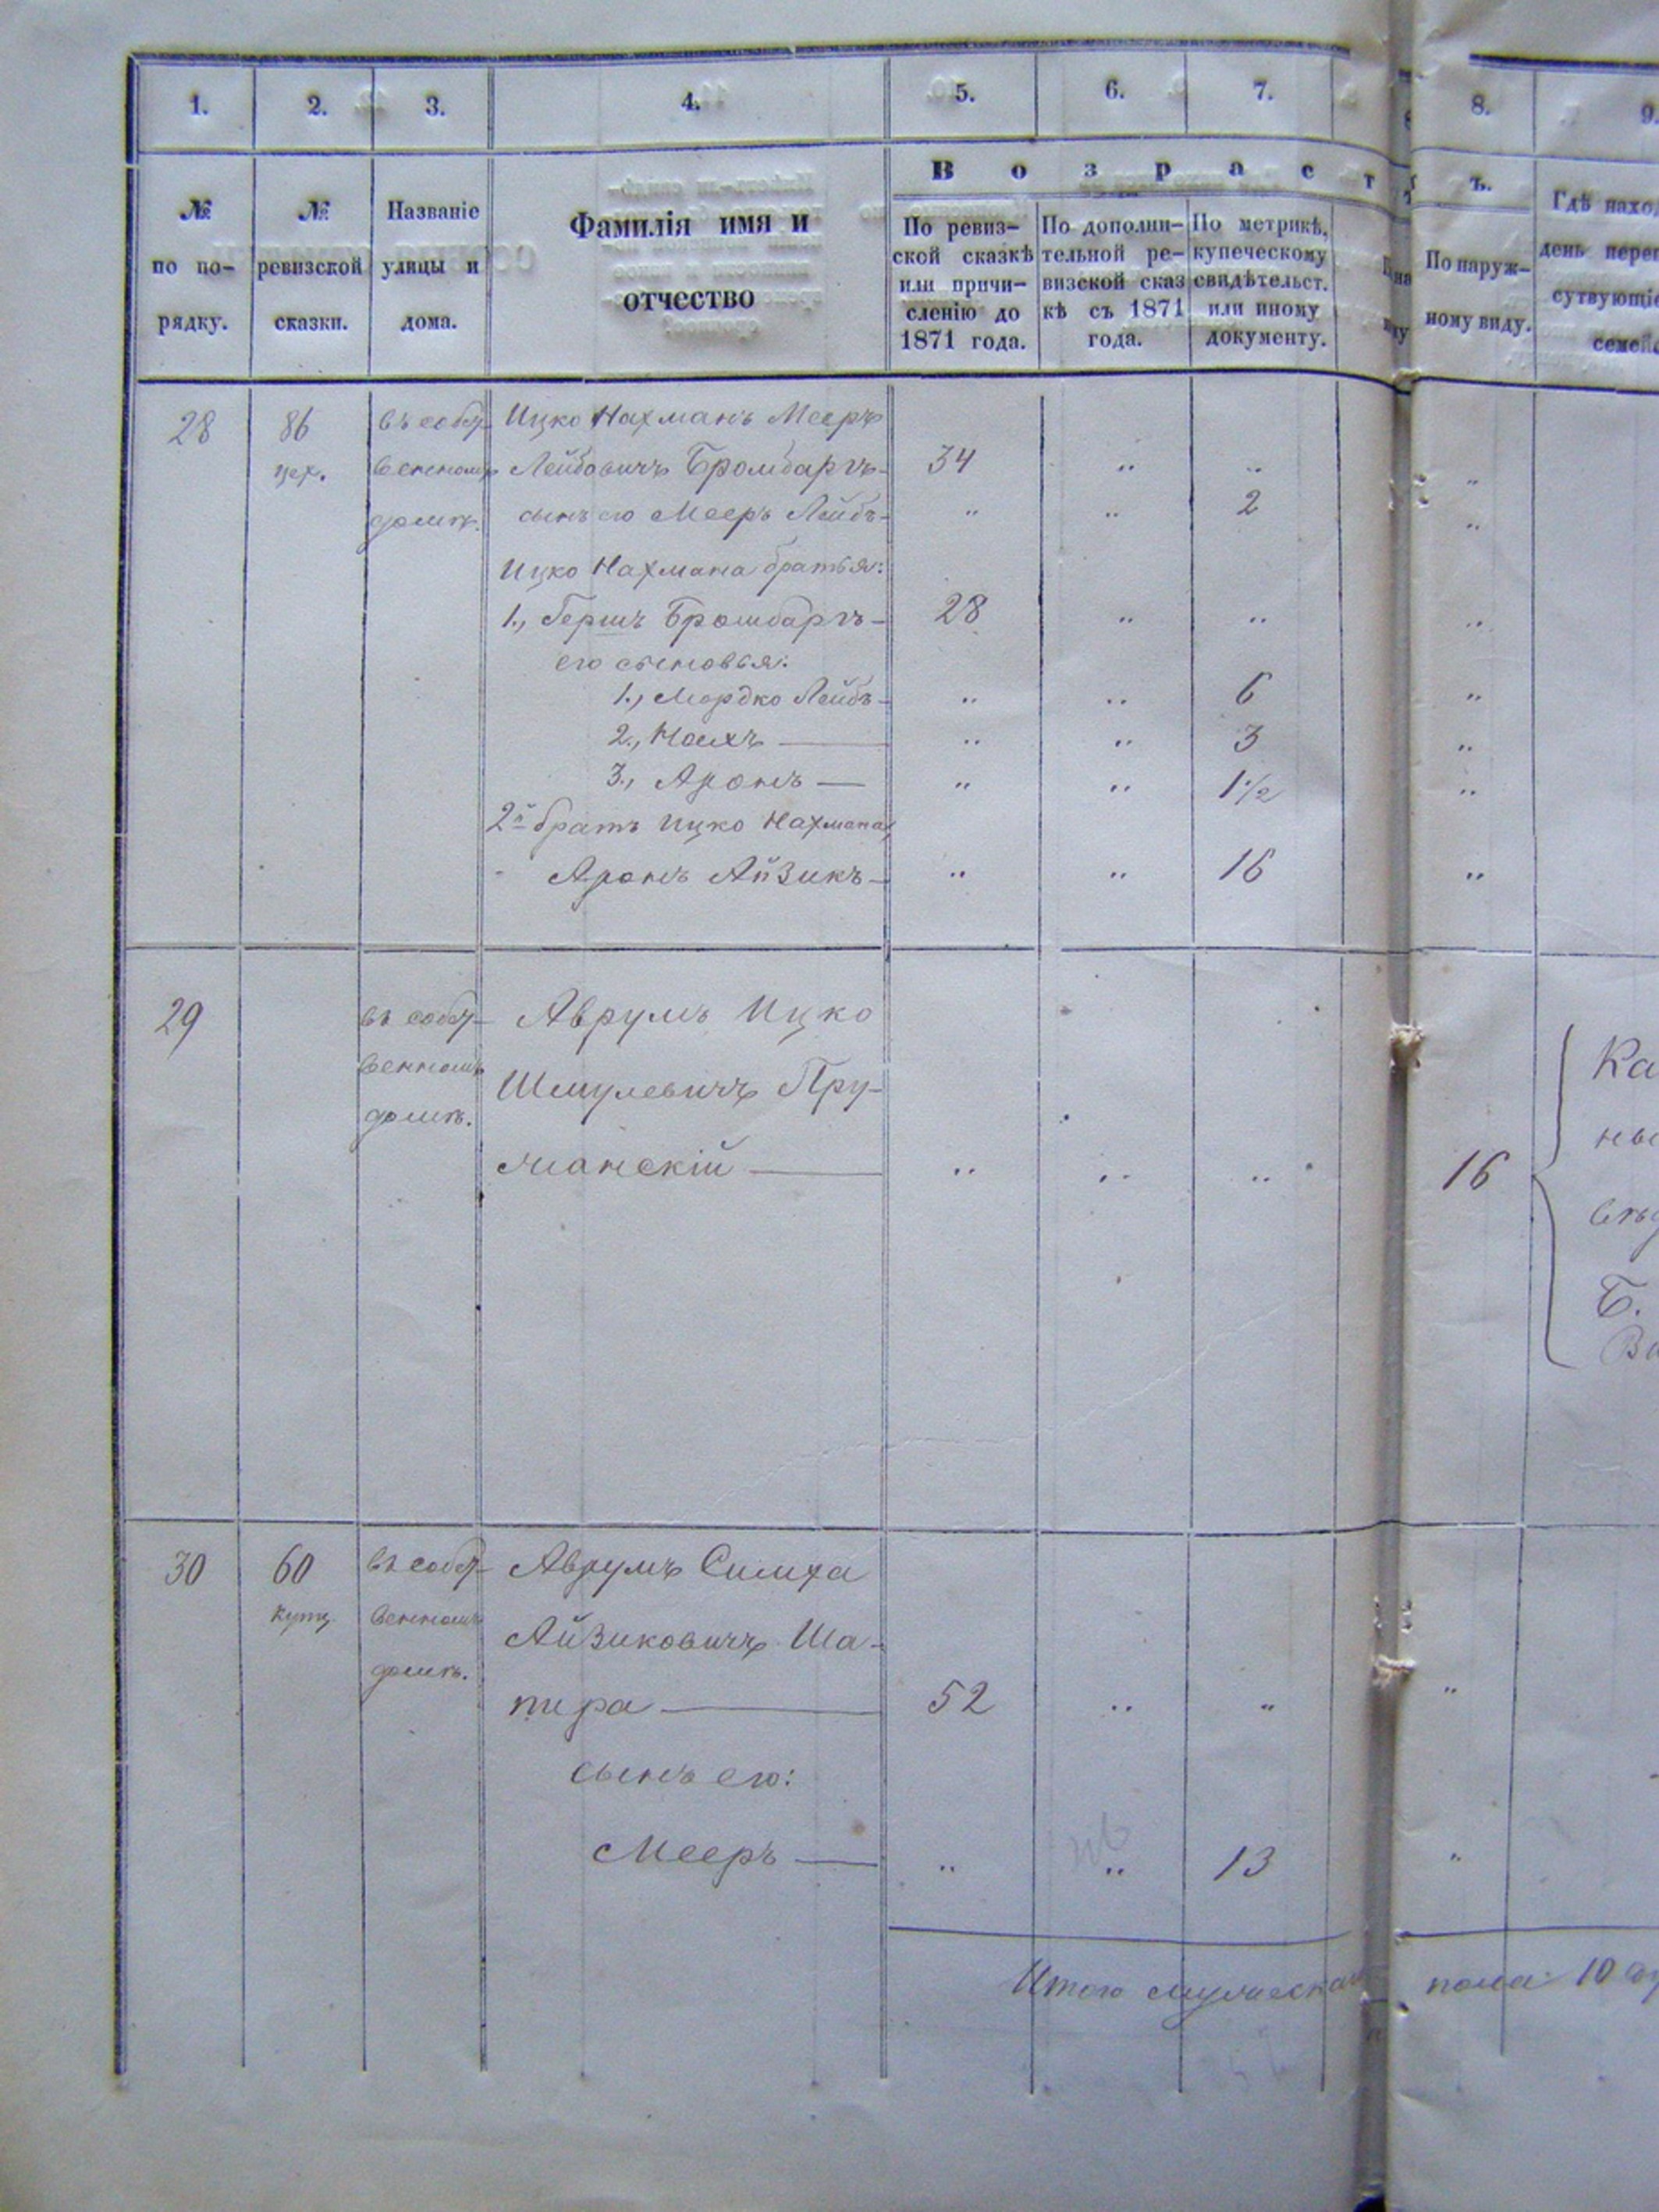 1. 2. 3. 4. 5. 6. 7. 8. 9.
В о з р а с т ъ.
№ по по-
рядку.
№
ревизской
сказки.
Названіе
улицы и
дома.
Фамилія имя и
отчество
По ревиз-
ской сказкѣ
или причи-
сленію до
1871 года.
По дополни-
тельной ре-
визской сказ
кѣ съ 1871
года.
По метрикѣ,
купеческому
свидѣтельст.
или иному
документу.
По наруж-
ному виду.
Гдѣ наход
день переп
сутвующіе
семей
28 86 въ собст- Ицко Нахманъ Мееръ
цех. венномъ Лейбовичъ Бромбаргъ- 34 " " "
домѣ. сынъ его Мееръ Лейбъ- " " 2 "
Ицко Нахмана братья:
1., Гершъ Бромбаргъ- 28 " " "
его сыновья:
1., Мордко Лейбъ- " " 6 "
2., Ноехъ — " " 3 "
3., Аронъ — " " 1½ "
2й братъ Ицко Нахмана,
Аронъ Айзикъ- " " 16 "
29 въ собст- Аврумъ Ицко
венномъ Шмулевичъ Пру-
домѣ.
жанскій — " " " 16
Ка
ны
вѣд
Б.
30 60 въ собст- Аврумъ Симха
Купц. венномъ Айзиковичъ Ша-
домѣ.
пира — 52 " " "
сынъ его:
Мееръ — " " 13 "
Итого мужескаго пола 10 ду